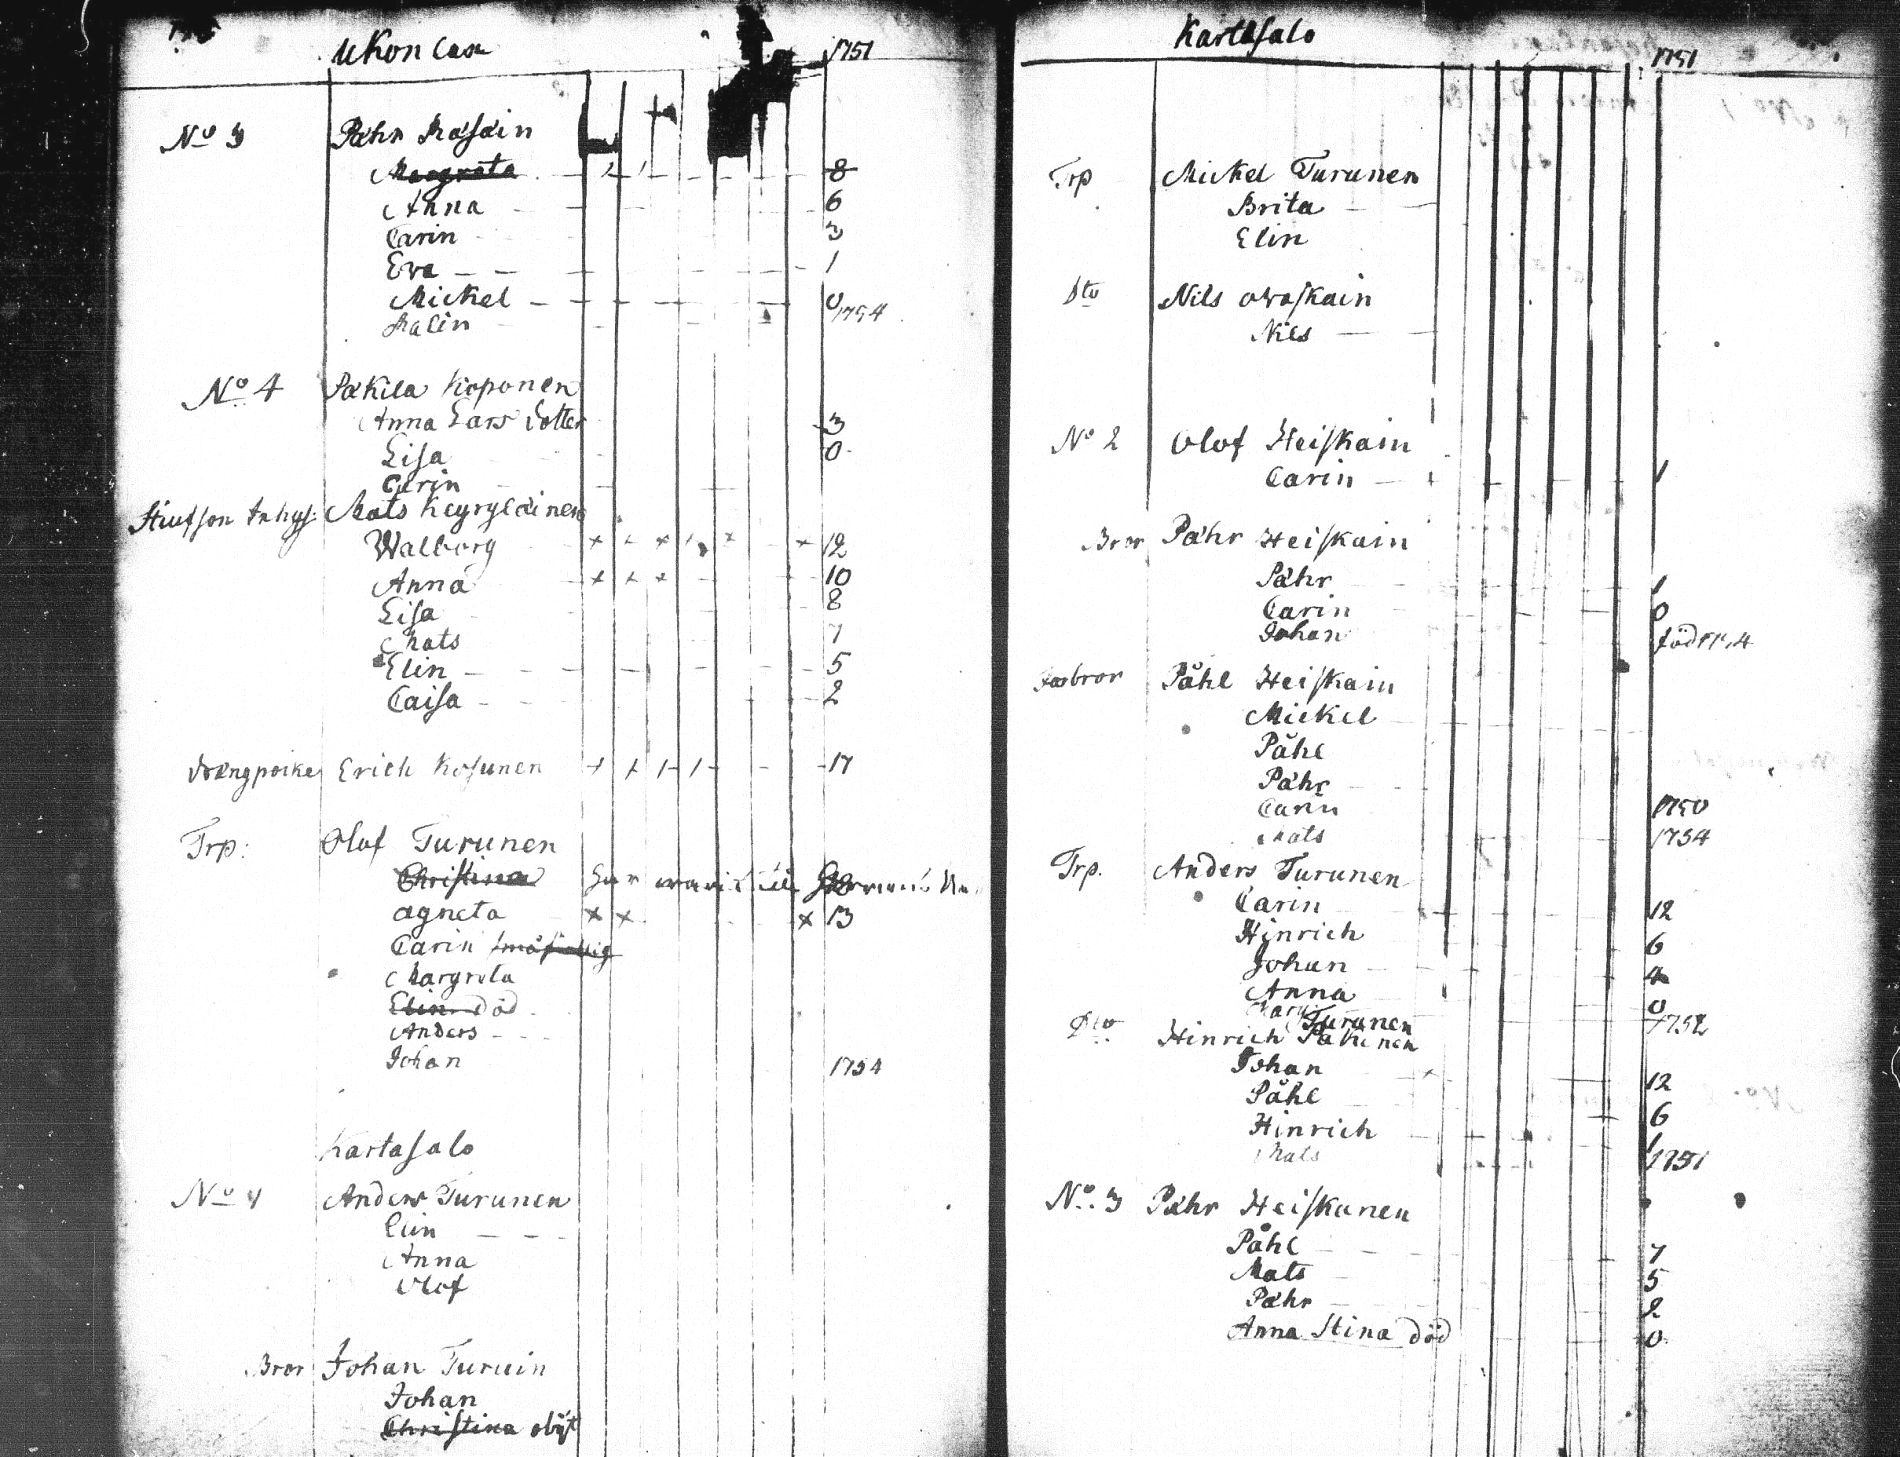 Ukon Lax 1751
No 3 Pähr Rasain
Margreta 8
Anna 6
Carin 3
Eva 1
Mickel 0
Malin 1754
No 4 Påkila Koponen
Anna Lars dotter 3
Lisa 0
Carin
Mats Keyryläinen
Walborg 12
Anna 10
Lisa 8
Mats 7
Elin 5
Caisa 2
drängpoike Erich Kosunen 17
Trp: Olof Turunen
Christina
agneta 13
Carin
Margreta
Elin död
Anders
Johan 1754
Kartasalo
No 1 Anders Turunen
Elin
Anna
Olof
Bror Johan Turuin
Johan
Christina
Kartasalo 1751
Trp Mickel Turunen
Brita
Elin
Dto Nils
Nils
No 2 Olof Heiskain
Carin 1
Bror Pähr Heiskain
Pähr 1
Carin 0
Johan född
Farbror Påhl Heiskain
Mickel
Påhl
Pähr
Carin 1750
Mats 1754
Trp. Anders Turunen
Carin 12
Hinrich 6
Johan 4
Anna 0
Marg 1752
Turunen
Dto Hinrich
Johan 12
Påhl 6
Hinrich 1
Mats 1751
No. 3 Pähr Heiskanen
Påhl 7
Mats 5
Pähr 2
Anna Stina död 0